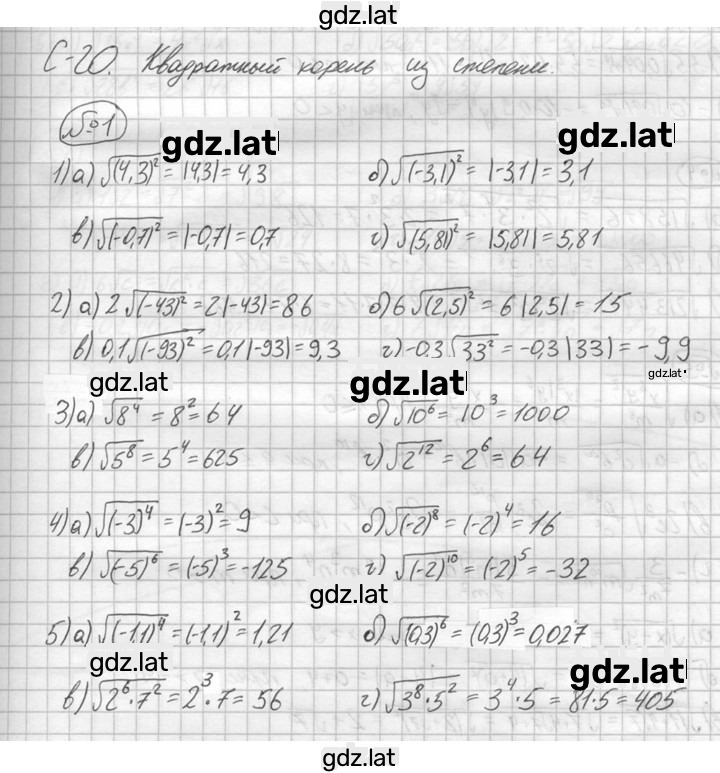 gdz.lat
С-20. Квадратный корень из степени.
№1
gdz.lat gdz.lat
1) а) √(4,3)² = |4,3| = 4,3 б) √(-3,1)² = |-3,1| = 3,1
в) √(-0,7)² = |-0,7| = 0,7 г) √(5,81)² = |5,81| = 5,81
2) а) 2√(-43)² = 2|-43| = 86 б) 6√(2,5)² = 6|2,5| = 15
в) 0,1√(-93)² = 0,1|-93| = 9,3 г) -0,3√33² = -0,3|33| = -9,9
gdz.lat gdz.lat gdz.lat
3) а) √8⁴ = 8² = 64 б) √10⁶ = 10³ = 1000
в) √5⁸ = 5⁴ = 625 г) √2¹² = 2⁶ = 64
4) а) √(-3)⁴ = (-3)² = 9 б) √(-2)⁸ = (-2)⁴ = 16
в) √(-5)⁶ = (-5)³ = -125 г) √(-2)¹⁰ = (-2)⁵ = -32
gdz.lat
5) а) √(-1,1)⁴ = (-1,1)² = 1,21 б) √(0,3)⁶ = (0,3)³ = 0,027
gdz.lat gdz.lat
в) √2⁶·7² = 2³·7 = 56 г) √3⁸·5² = 3⁴·5 = 81·5 = 405
gdz.lat